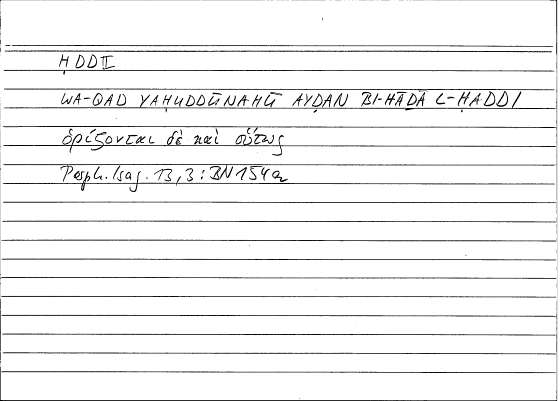 ḤDD II
WA-QAD YAḤUDDŪNAHŪ AYḌAN BI-HĀḎĀ L-ḤADDI
ὁρίζονται δὲ καὶ οὕτως
Porph. Isag. 13,3 : BN 154a